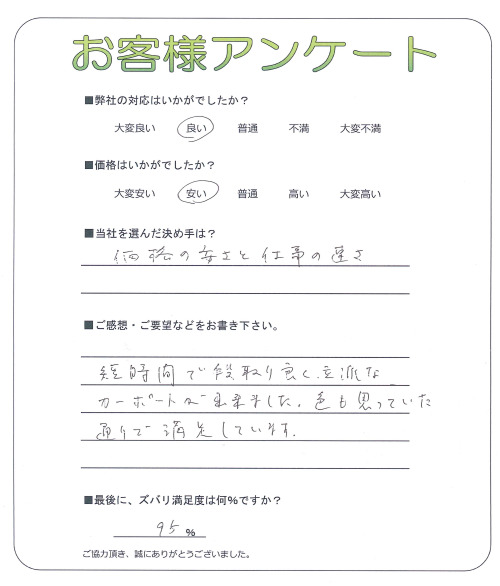 お客様アンケート
■弊社の対応はいかがでしたか？
大変良い 良い 普通 不満 大変不満
■価格はいかがでしたか？
大変安い 安い 普通 高い 大変高い
■当社を選んだ決め手は？
価格の安さと仕事の速さ
■ご感想・ご要望などをお書き下さい。
短時間で段取り良く、立派な
カーポートが出来ました。色も思っていた
通りで満足しています。
■最後に、ズバリ満足度は何%ですか？
95 %
ご協力頂き、誠にありがとうございました。